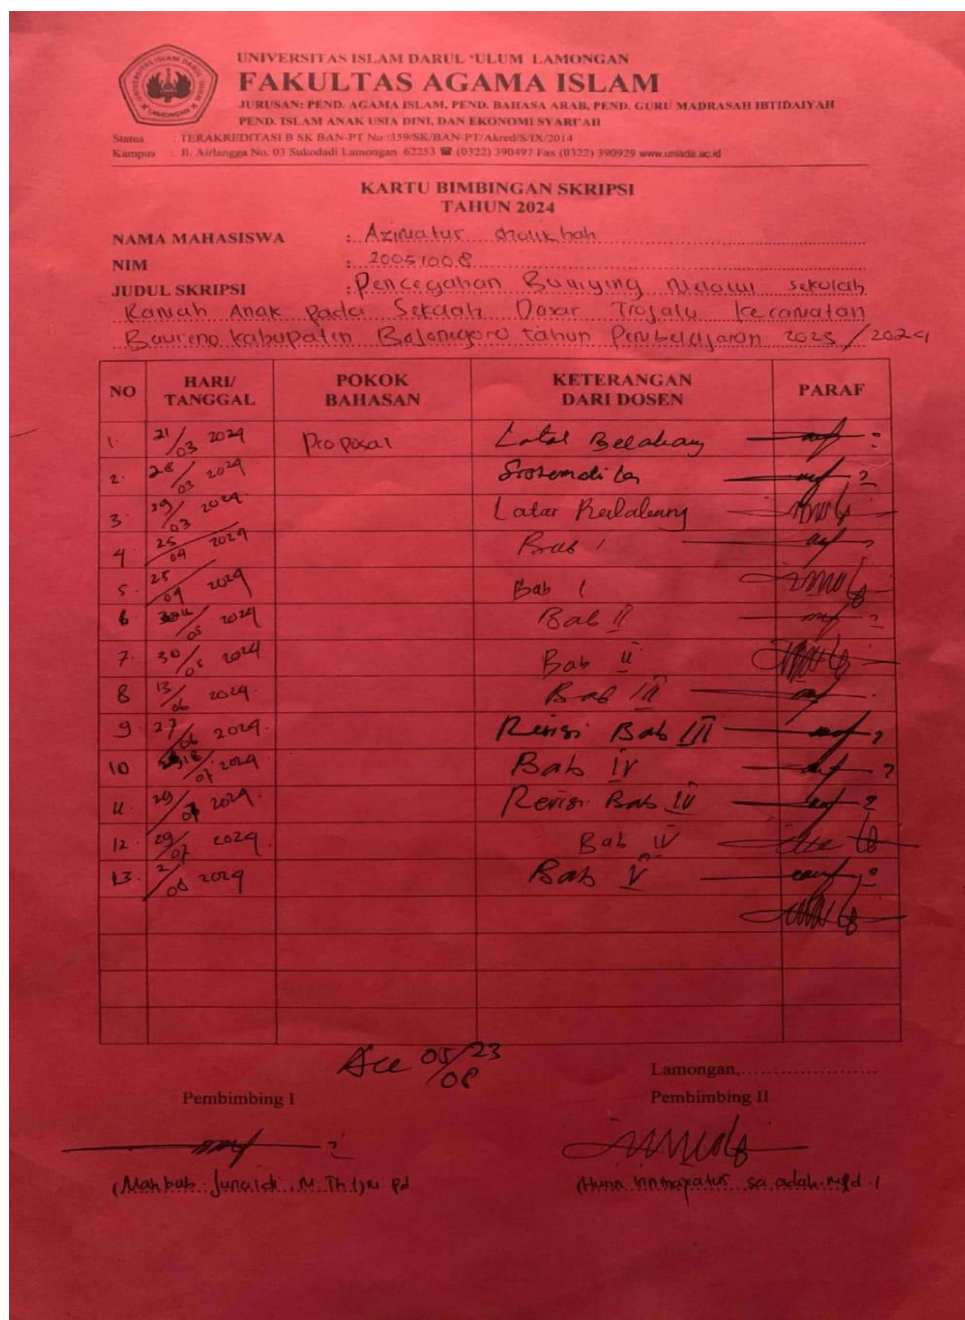 UNIVERSITAS ISLAM DARUL 'ULUM LAMONGAN
FAKULTAS AGAMA ISLAM
JURUSAN: PEND. AGAMA ISLAM, PEND. BAHASA ARAB, PEND. GURU MADRASAH IBTIDAIYAH
PEND. ISLAM ANAK USIA DINI, DAN EKONOMI SYARI'AH
Status : TERAKREDITASI B SK BAN-PT No :359/SK/BAN-PT/Akred/S/IX/2014
Kampus : Jl. Airlangga No. 03 Sukodadi Lamongan 62253 ☎ (0322) 390497 Fax (0322) 390929 www.unisda.ac.id
KARTU BIMBINGAN SKRIPSI
TAHUN 2024
NAMA MAHASISWA : Azimatur
NIM : 200510008
JUDUL SKRIPSI : Pencegahan Bullying Melalui sekolah
Ramah Anak pada Sekolah Dasar Trojalu kecamatan
Baureno kabupaten Bojonegoro tahun Pembelajaran 2023 / 2024
NO HARI/TANGGAL POKOK BAHASAN KETERANGAN DARI DOSEN PARAF
1. 21/03 2024 Proposal Latar Belakang
2. 28/03 2024 Sistematika
3. 29/03 2024 Latar Belakang
4. 25/04 2024 Bab I
5. 25/04 2024 Bab I
6 /05 2024 Bab II
7. 30/05 2024 Bab II
8 13/06 2024. Bab III
9. 27/06 2024. Revisi Bab III
10 18/07 2024 Bab IV
11. 29/07 2024. Revisi Bab IV
12. 29/07 2024. Bab IV
13. 2/08 2024 Bab V
Acc 05/08 23
Lamongan,....................
Pembimbing I Pembimbing II
(Mahbub Junaidi, M. Th.I) M. Pd
sa'adah. M.Pd.I